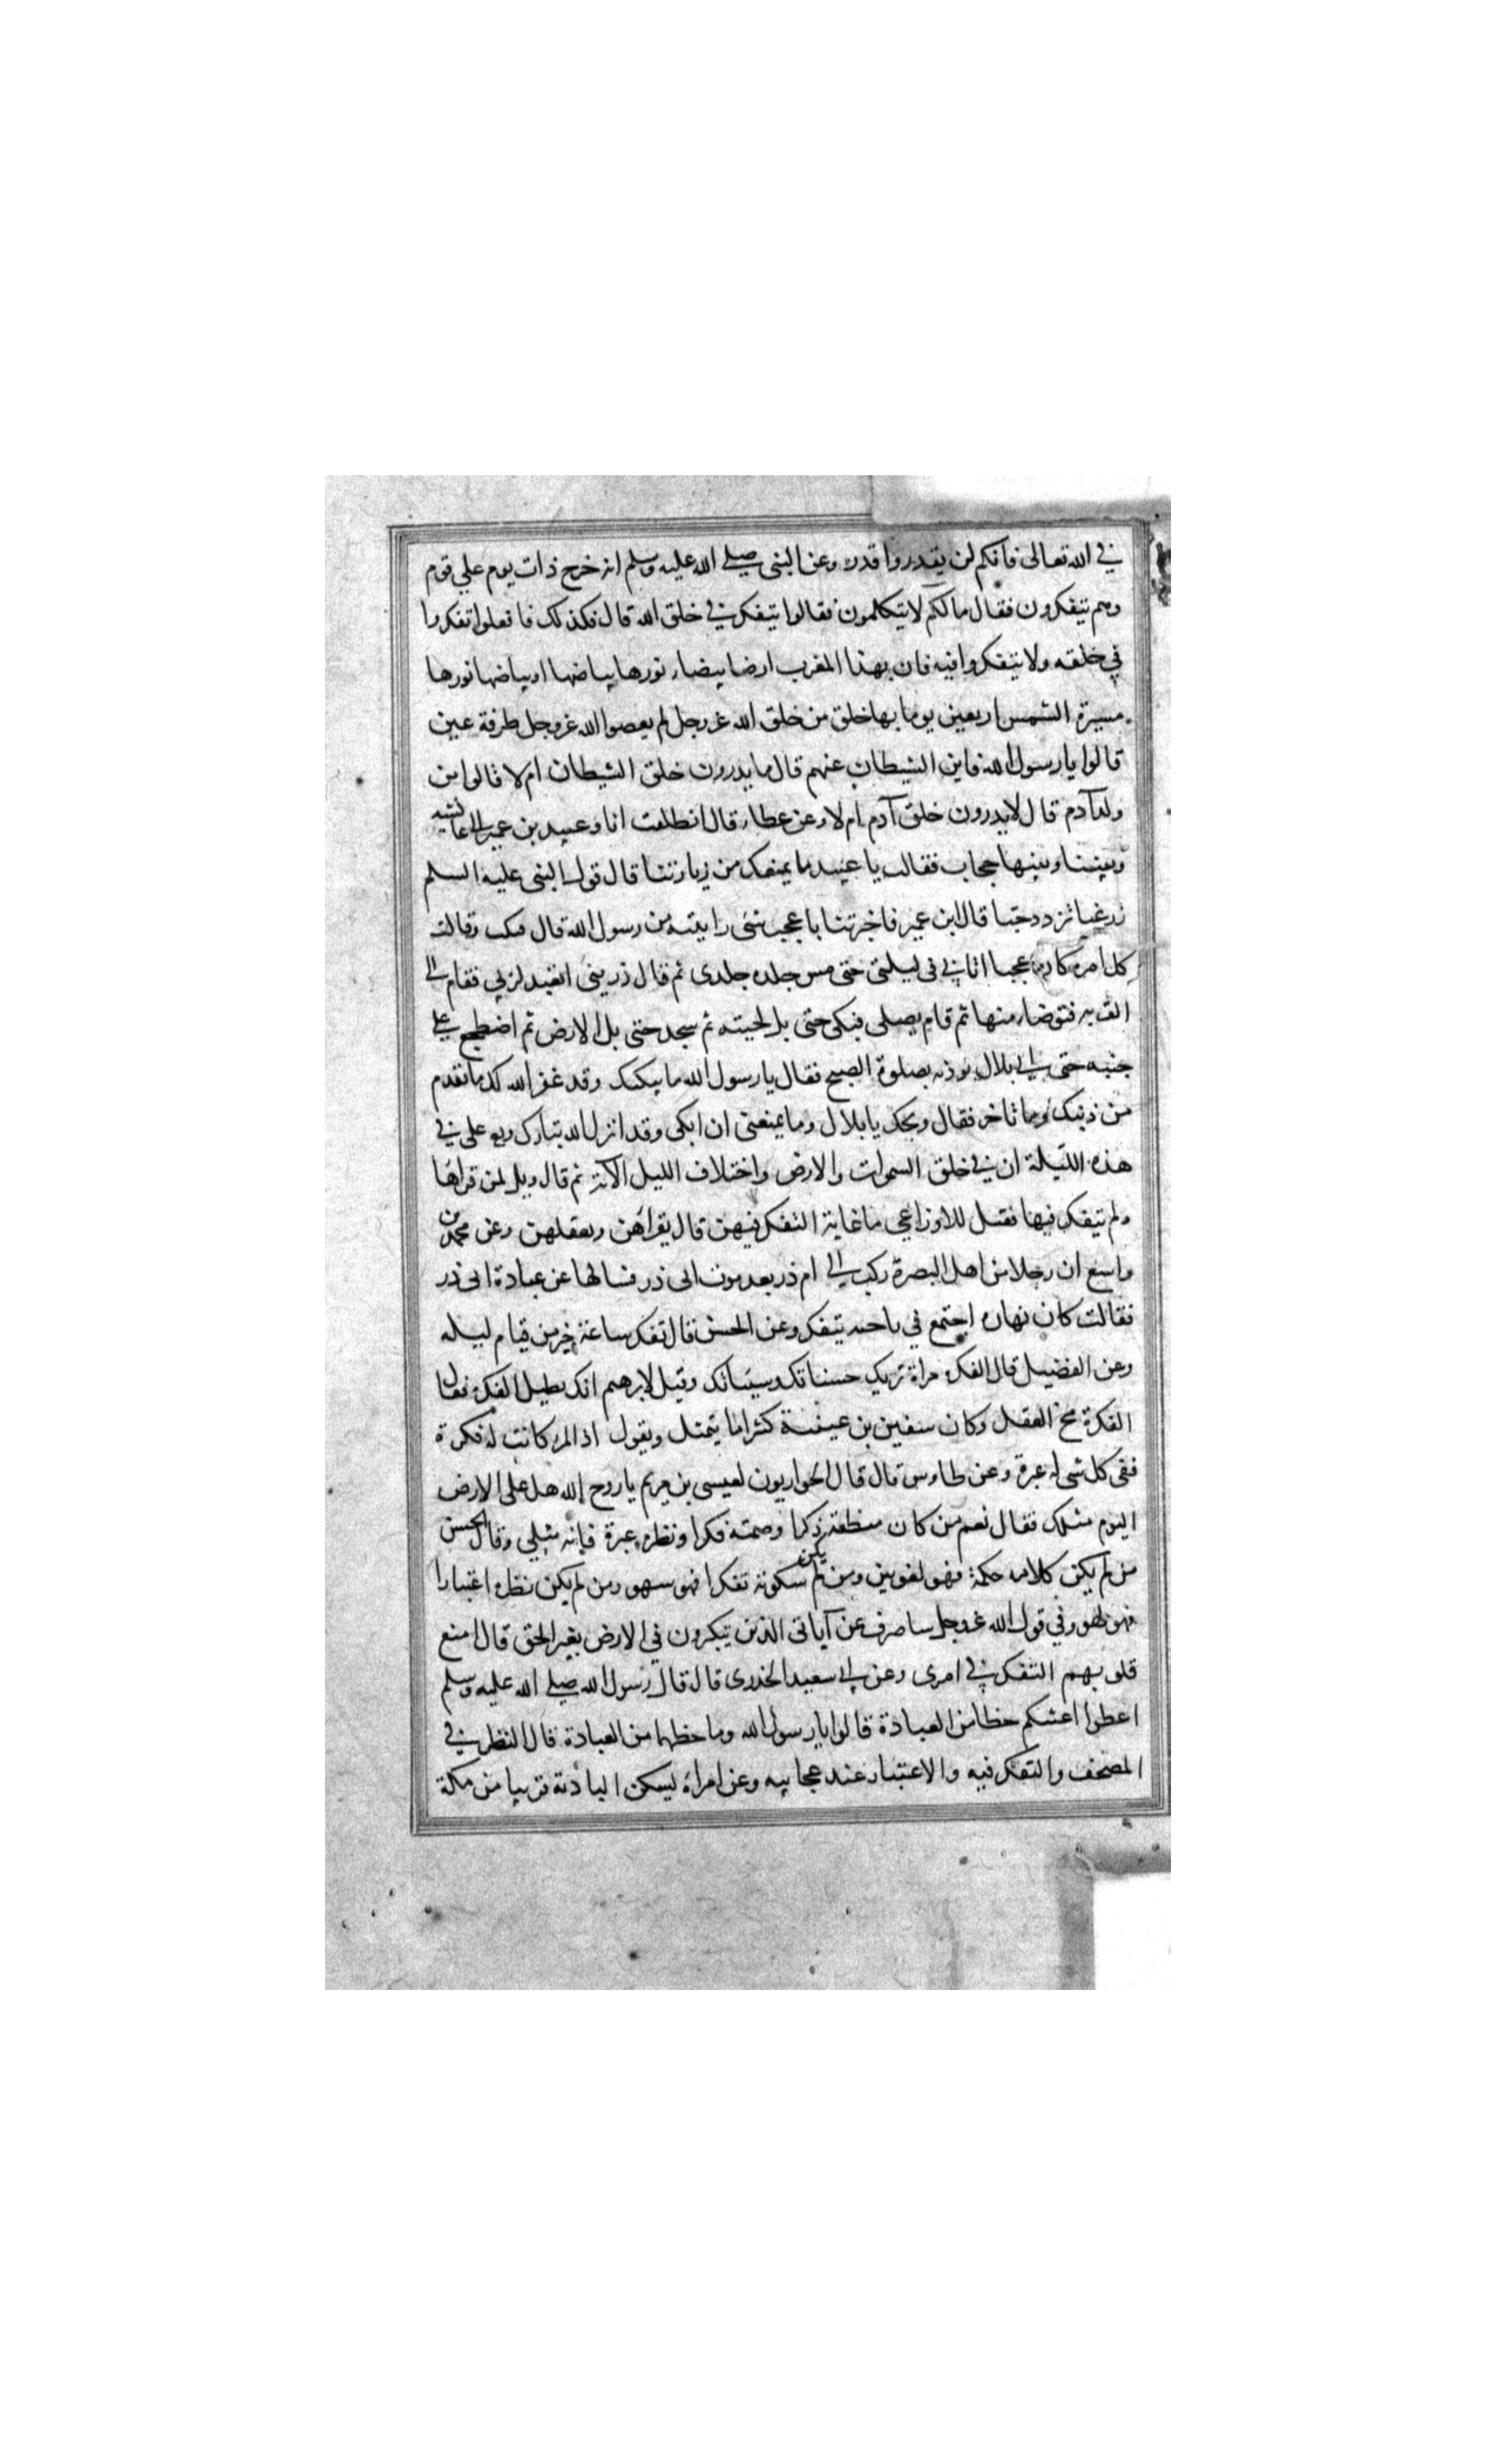 في الله تعالى فانكم لن يقدروا قدره وعن النبى صلى الله عليه وسلم انه خرج ذات يوم على قوم
وهم يتفكرون فقال مالكم لا يتكلمون فقالوا نتفكر في خلق الله قال فكذلك فافعلوا تفكروا
في خلقه ولا تتفكروا فيه فان بهذا المغرب ارضا بيضاء نورها بياضها او بياضها نورها
مسيرة الشمس اربعين يوما بها خلق من خلق الله عزوجل لم يعصوا الله عزوجل طرفة عين
قالوا يا رسول الله فاين الشيطان عنهم قال ما يدرون خلق الشيطان ام لا قالوا من
ولد آدم قال لا يدرون خلق آدم ام لا وعن عطاء قال انطلقت انا وعبيد بن عمير الى عائشه
وبيننا وبينها حجاب فقالت يا عبيد ما يمنعك من زيارتنا قال قول النبى عليه السلم
زر غبا تزدد حبا قال ابن عمير فاخبرتنا باعجب شئ رايته من رسول الله قال فبكت وقالت
كل امره كان عجبا اتاني فى ليلتى حتى مس جلده جلدى ثم قال ذرينى اتعبد لربي فقام الى
القربه فتوضاء منها ثم قام يصلى فبكى حتى بل لحيته ثم سجد حتى بل الارض ثم اضطجع على
جنبه حتى اتى بلال يوذنه بصلوة الصبح فقال يا رسول الله ما يبكيك وقد غفر الله لك ما تقدم
من ذنبك وما تاخر فقال ويحك يا بلال وما يمنعنى ان ابكى وقد انزل الله تبارك وتع على في
هذه الليلة ان في خلق السموات والارض واختلاف الليل الآية ثم قال ويل لمن قراها
ولم يتفكر فيها فقيل للاوزاعي ما غاية التفكر فيهن قال يقراهن ويعقلهن وعن محمد بن
واسع ان رجلا من اهل البصرة ركب الى ام ذر بعد موت ابى ذر فسالها عن عبادة ابى ذر
فقالت كان نهاره اجتمع في ناحيه يتفكر وعن الحسن قال تفكر ساعة خير من قيام ليله
وعن الفضيل قال الفكر مراة تريك حسناتك وسيئاتك وقيل لابرهيم انك تطيل الفكرة فقال
الفكرة مخ العقل وكان سفين بن عيينة كثيرا ما يتمثل ويقول اذ المرء كانت له فكرة
ففى كل شى له عبرة وعن طاوس قال قال الحواريون لعيسى بن مريم يا روح الله هل على الارض
اليوم مثلك فقال نعم من كان منطقه ذكرا وصمته فكرا ونظره عبرة فإنه مثلي وقال الحسن
من لم يكن كلامه حكمة فهو لغو ومن لم يكن سكوته تفكرا فهو سهو ومن لم يكن نظره اعتبارا
فهو لهو وفي قول الله عزوجل ساصرف عن آياتى الذين يتكبرون في الارض بغير الحق قال امنع
قلوبهم التفكر في امرى وعن ابى سعيد الخدرى قال قال رسول الله صلى الله عليه وسلم
اعطوا اعينكم حظا من العبادة قالوا يا رسول الله وما حظها من العبادة قال النظر في
المصحف والتفكر فيه والاعتبار عند عجايبه وعن امراة تسكن البادية قريبا من مكة